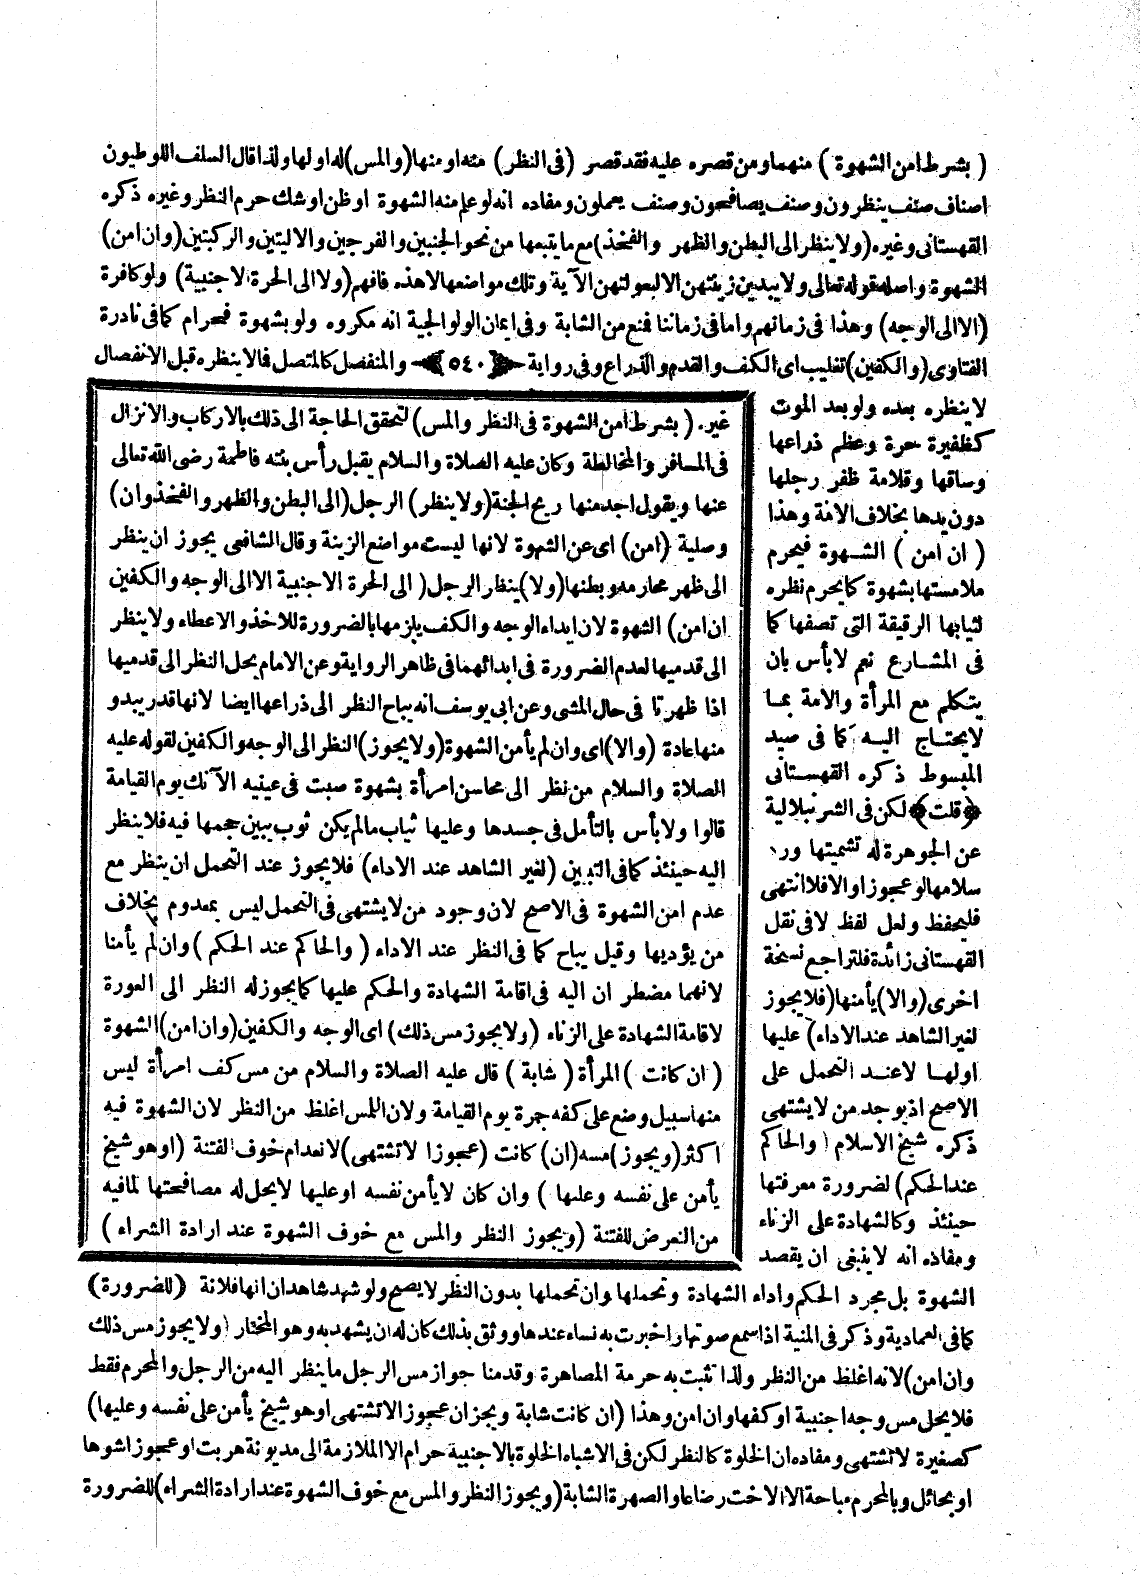 ( بشرط امن الشهوة ) منهما ومن قصره عليه فقد قصر (فى النظر) منه او منها (والمس) له او لها ولذا قال السلف اللوطيون
اصناف صنف ينظرون وصنف يصافحون وصنف يعملون ومفاده انه لو علم منه الشهوة او ظن او شك حرم النظر وغيره ذكره
القهستانى وغيره (ولا ينظر الى البطن والظهر والفخذ) مع ما يتبعها من نحو الجنبين والفرجين والاليتين والركبتين (وان امن)
الشهوة واصله قوله تعالى ولا يبدين زينتهن الا لبعولتهن الآية وتلك مواضعها لا هذه فافهم (ولا الى الحرة الاجنبية) ولو كافرة
(الا الى الوجه) وهذا فى زمانهم واما فى زماننا فمنع من الشابة وفى ايمان الولوالجية انه مكروه ولو بشهوة فحرام كما فى نادرة
الفتاوى (والكفين) تغليب اى الكف والقدم والذراع وفى رواية ﴿٥٤٠﴾ والمنفصل كالمتصل فالا ينظره قبل الانفصال
لا ينظره بعده ولو بعد الموت
كظفيرة حرة وعظم ذراعها
وساقها وقلامة ظفر رجلها
دون يدها بخلاف الامة وهذا
( ان امن ) الشهوة فيحرم
ملامستها بشهوة كما يحرم نظره
لثيابها الرقيقة التى تصفها كما
فى المشارع نعم لا بأس بان
يتكلم مع المرأة والامة بما
لا يحتاج اليه كما فى صيد
المبسوط ذكره القهستانى
﴿قلت﴾ لكن فى الشرنبلالية
عن الجوهرة له تشميتها ورد
سلامها لو عجوز او الا فلا انتهى
فليحفظ ولعل لفظ لا فى نقل
القهستانى زائدة فلتراجع نسخة
اخرى (والا) يأمنها (فلا يجوز
لغير الشاهد عند الاداء) عليها
اولها لا عند التحمل على
الاصح اذ يوجد من لا يشتهى
ذكره شيخ الاسلام (والحاكم
عند الحكم) لضرورة معرفتها
حينئذ وكالشهادة على الزناء
ومفاده انه لا ينبغى ان يقصد
غير. (بشرط امن الشهوة فى النظر والمس) لتحقق الحاجة الى ذلك بالاركاب والانزال
فى المسافر والمخالطة وكان عليه الصلاة والسلام يقبل رأس بنته فاطمة رضى الله تعالى
عنها ويقول اجد منها ريح الجنة (ولا ينظر) الرجل (الى البطن والظهر والفخذ وان)
وصلية (امن) اى عن الشهوة لانها ليست مواضع الزينة وقال الشافعى يجوز ان ينظر
الى ظهر محارمه وبطنها (ولا) ينظر الرجل (الى الحرة الاجنبية الا الى الوجه والكفين
ان امن) الشهوة لان ابداء الوجه والكف يلزمها بالضرورة للاخذ والاعطاء ولا ينظر
الى قدميها لعدم الضرورة فى ابدائهما فى ظاهر الرواية وعن الامام يحل النظر الى قدميها
اذا ظهرتا فى حال المشى وعن ابى يوسف انه يباح النظر الى ذراعها ايضا لانها قد يبدو
منها عادة (والا) اى وان لم يأمن الشهوة (ولا يجوز) النظر الى الوجه والكفين لقوله عليه
الصلاة والسلام من نظر الى محاسن امرأة بشهوة صبت فى عينيه الآنك يوم القيامة
قالوا ولا بأس بالتأمل فى جسدها وعليها ثياب مالم يكن ثوب يبين حجمها فيه فلا ينظر
اليه حينئذ كما فى التبيين (لغير الشاهد عند الاداء) فلا يجوز عند التحمل ان ينظر مع
عدم امن الشهوة فى الاصح لان وجود من لا يشتهى فى التحمل ليس بمعدوم بخلاف
من يؤديها وقيل يباح كما فى النظر عند الاداء ( والحاكم عند الحكم ) وان لم يأمنا
لانهما مضطر ان اليه فى اقامة الشهادة والحكم عليها كما يجوز له النظر الى العورة
لاقامة الشهادة على الزناء (ولا يجوز مس ذلك) اى الوجه والكفين (وان امن) الشهوة
( ان كانت ) المرأة ( شابة ) قال عليه الصلاة والسلام من مس كف امرأة ليس
منها سبيل وضع على كفه جمرة يوم القيامة ولان اللمس اغلظ من النظر لان الشهوة فيه
اكثر (ويجوز) مسه (ان) كانت (عجوزا لا تشتهى) لانعدام خوف الفتنة (او هو شيخ
يأمن على نفسه وعليها ) وان كان لا يأمن نفسه او عليها لا يحل له مصافحتها لما فيه
من التعرض للفتنة (ويجوز النظر والمس مع خوف الشهوة عند ارادة الشراء )
الشهوة بل مجرد الحكم واداء الشهادة وتحملها وان تحملها بدون النظر لا يصح ولو شهد شاهدان انها فلانة (للضرورة)
كما فى العمادية وذكر فى المنية اذا سمع صوتها واخبرت به نساء عندها ووثق بذلك كان له ان يشهد به وهو المختار (ولا يجوز مس ذلك
وان امن) لانه اغلظ من النظر ولذا تثبت به حرمة المصاهرة وقدمنا جواز مس الرجل ما ينظر اليه من الرجل والمحرم فقط
فلا يحل مس وجه اجنبية او كفها وان امن وهذا (ان كانت شابة ويجز ان عجوز الا تشتهى او هو شيخ يأمن على نفسه وعليها)
كصغيرة لا تشتهى ومفاده ان الخلوة كالنظر لكن فى الاشباه الخلوة بالاجنبية حرام الا الملازمة الى مديونة هربت او عجوز اشوها
او بحائل وبالمحرم مباحة الا الاخت رضاعا والصهرة الشابة (ويجوز النظر والمس مع خوف الشهوة عند ارادة الشراء) للضرورة